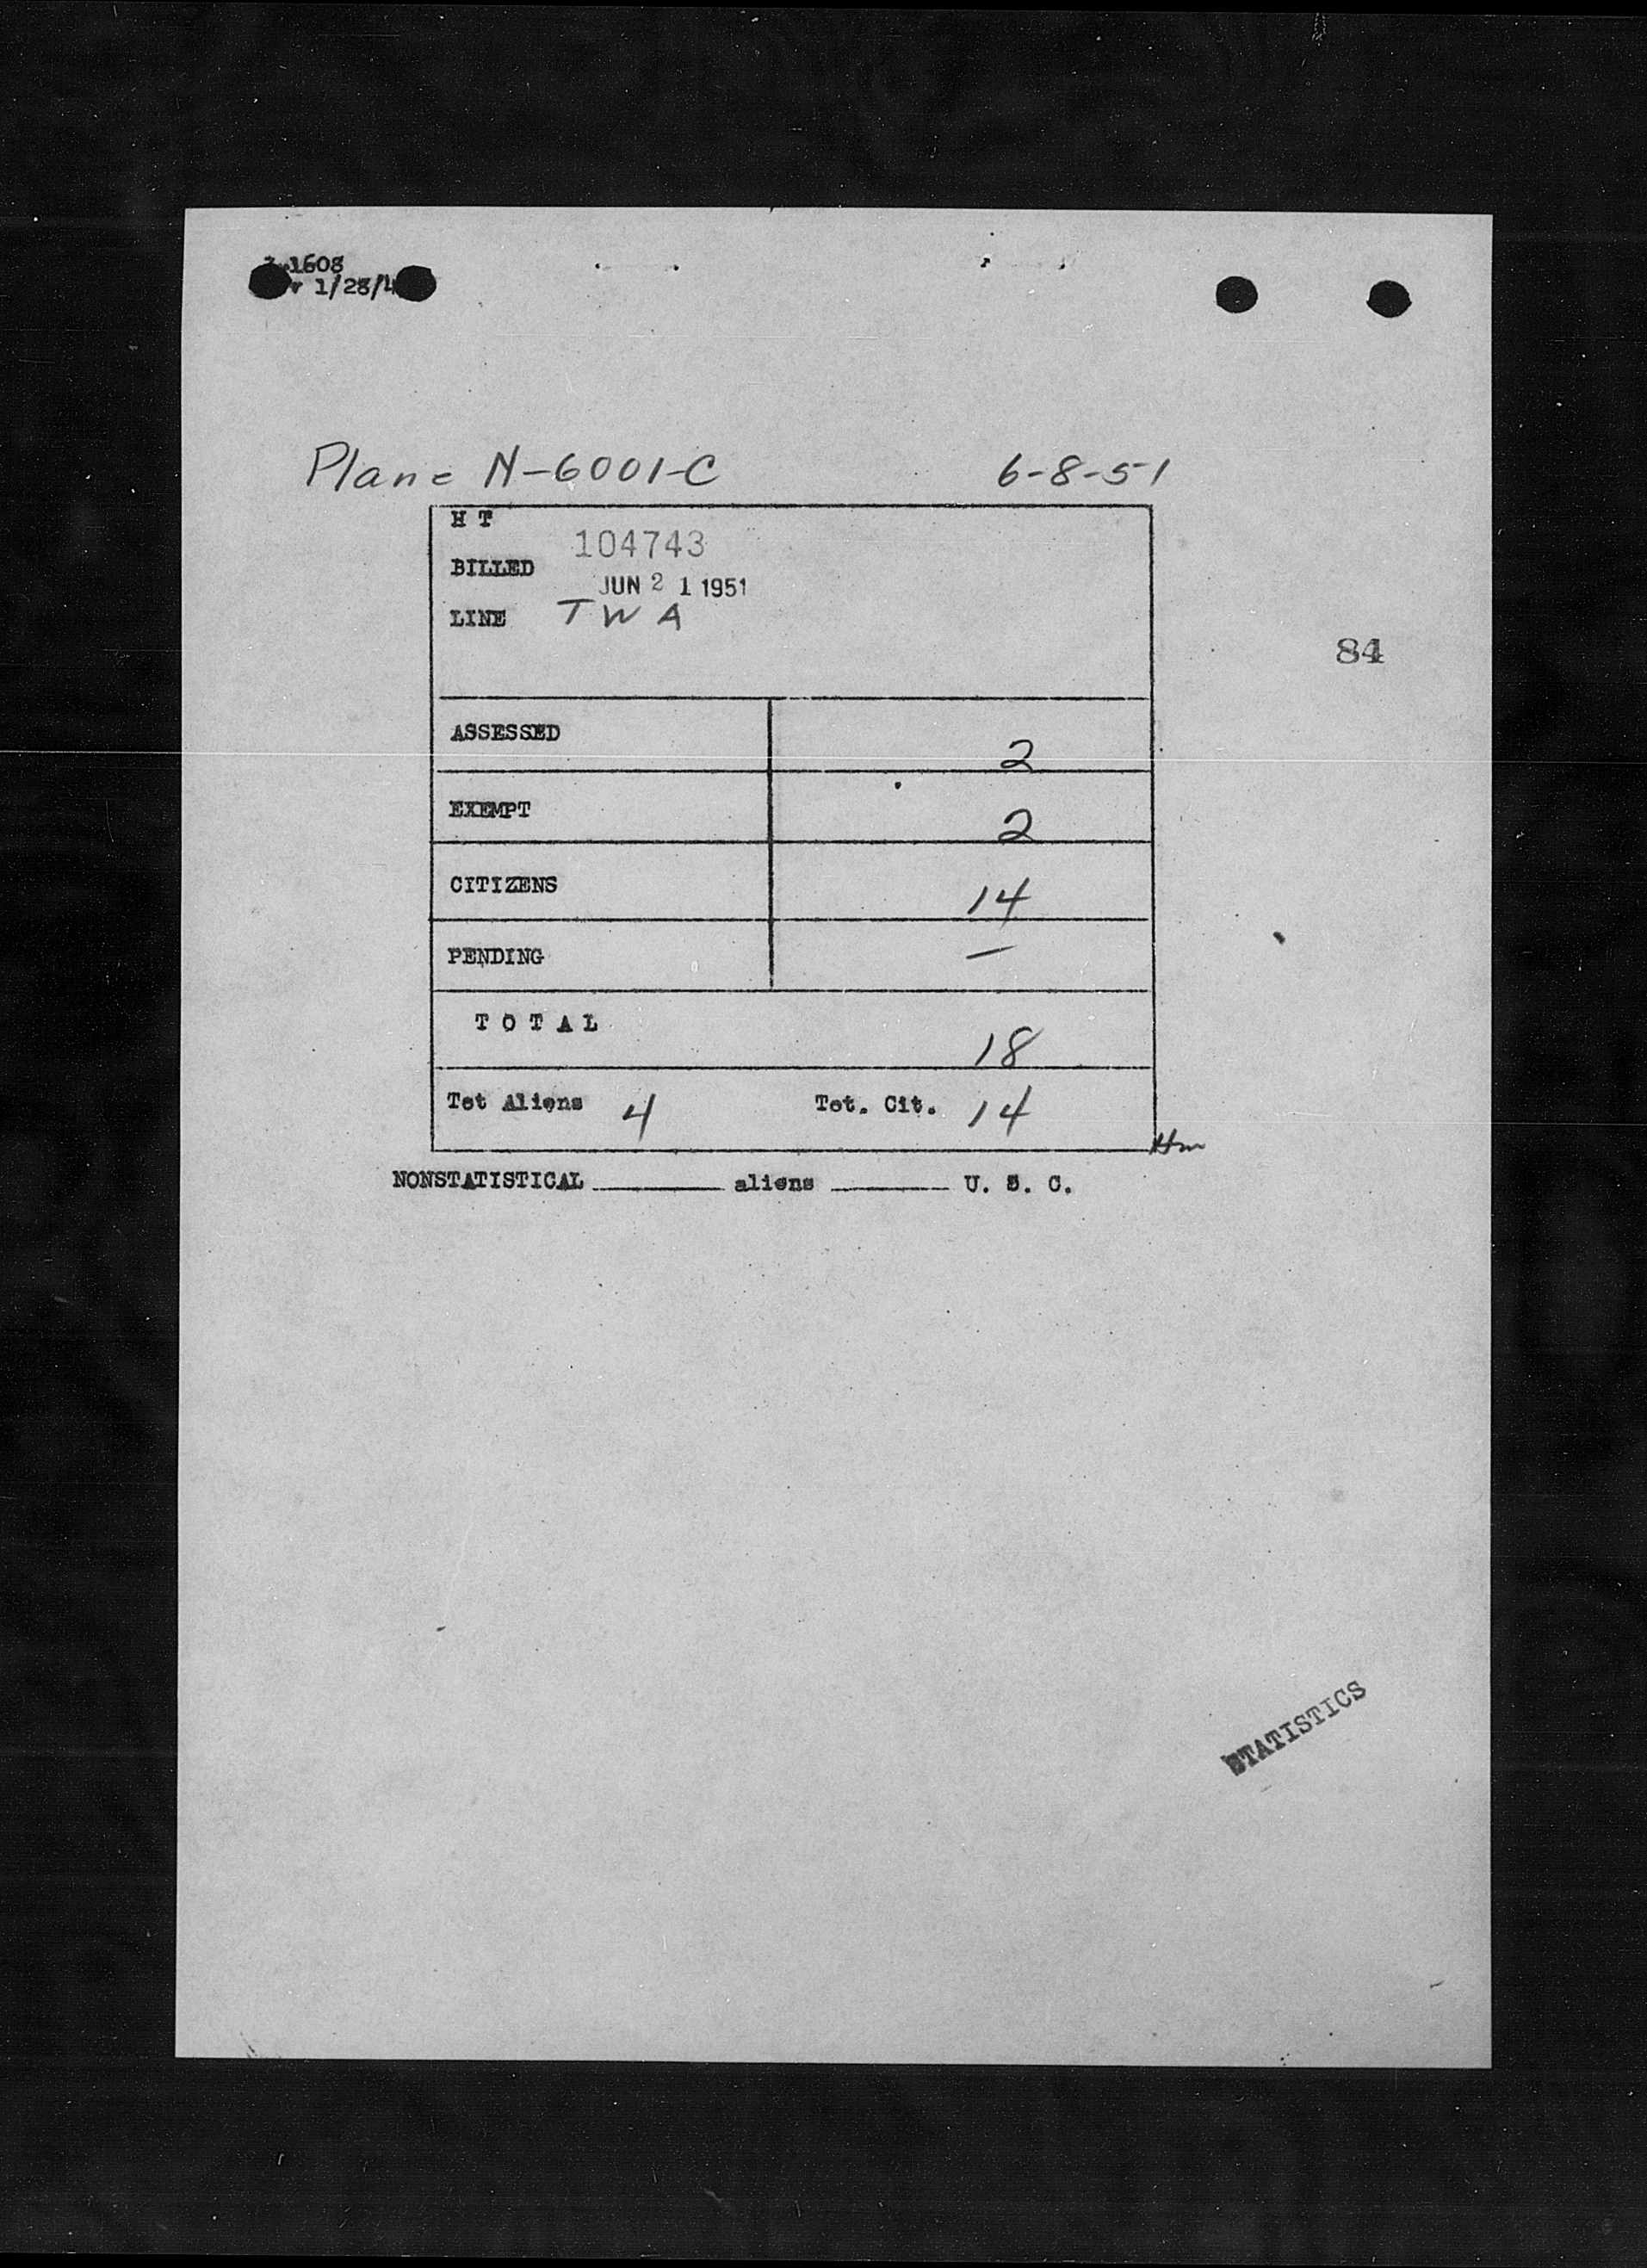 1608
1/28/4
Plane N-6001-C 6-8-51
H T
104743
BILLED
JUN 2 1 1951
LINE TWA
84
ASSESSED 2
EXEMPT 2
CITIZENS 14
PENDING —
T O T A L 18
Tot Aliens 4 Tot. Cit. 14
Hm
NONSTATISTICAL ________ aliens ________ U. S. C.
STATISTICS